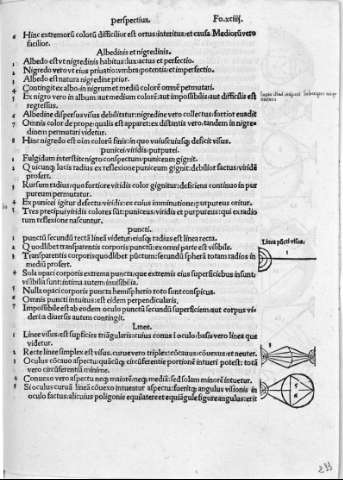 perspectius. Fo.xiiij.
6 Hinc extremorũ colorũ difficilior est ortus interitus: et causa. Mediorũ vero
facilior.
Albedinis et nigredinis.
1 Albedo est vt nigredinis habitus: lux: actus et perfectio.
2 Nigredo vero vt eius priuatio: vmbra potentia et imperfectio.
3 Albedo est natura nigredine prior.
4 Contingit ex albo in nigrum et mediũ colorẽ omnẽ permutari.
5 Ex nigro vero in album aut medium colorẽ aut impossibilis aut difficilis est
regressus.
6 Albedine dispersus visus debilitatur: nigredine vero collectus fortior euadit
7 Omnis color de prope qualis est apparet: ex distantis vero tandem in nigre-
dinem permutari videtur.
8 Hinc nigredo est oim colorũ finis: in quo visus deficit visus.
punicei viridis: purpurei.
1 Fulgidam interstite nigro conspectum: puniceum gignit.
2 Quicunq; lucis radius ex reflexione puniceum gignit: debilior factus: viridẽ
profert.
3 Rursum radius quo fortiore viridis color gignitur: deficiens continuo in pur
pureum permutatur.
4 Ex punicei igitur defectu viridis: et cuius imminutione: purpureus oritur.
5 Tres precipui viridis colores sũt: puniceus: viridis et purpureus: qui ex radio
rum reflexione nascuntur.
puncti.
1 punctũ secundũ rectã lineã videtur: eiusq; radius est linea recta.
2 Quodlibet transparentis corporis punctũ: ex omni parte est visibile.
3 Transparentis corporis quodlibet pũctum: secundũ spherã totam radios in
mediũ profert.
4 Sola opaci corporis extrema puncta: que extremis eius superficiebus insunt:
visibilia sunt: intima autem inuisibilia.
5 Nulla opaci corporis puncta hemispherio toto sunt conspicua.
6 Omnis puncti intuitus: est eidem perpendicularis.
7 Impossibile est ab eodem oculo punctũ secundũ superficiem aut corpus vi-
deri: a diuersis autem contingit.
Linee.
1 Linee visus: est supficies triãgularis: cuius conus ĩ oculo: basis vero linea que
videtur.
2 Recte linee simplex est visus. curue vero triplex: cõcauus: cõuexus: et neuter.
3 Oculus cõcauo aspectu: quãcũq; circũferentie portionẽ intueri potest: totã
vero circũferentiã minime.
4 Conuexo vero aspectu neq; maiorẽ neq; mediã: sed solam minorẽ intuetur.
5 Si oculus curuã lineã cõuexo intuentur aspectu: fueritq; angulus visionis in
oculo factus: alicuius poligonie equilatere et equiãgule figure angulus: erit
Linea pũcti visus.
233